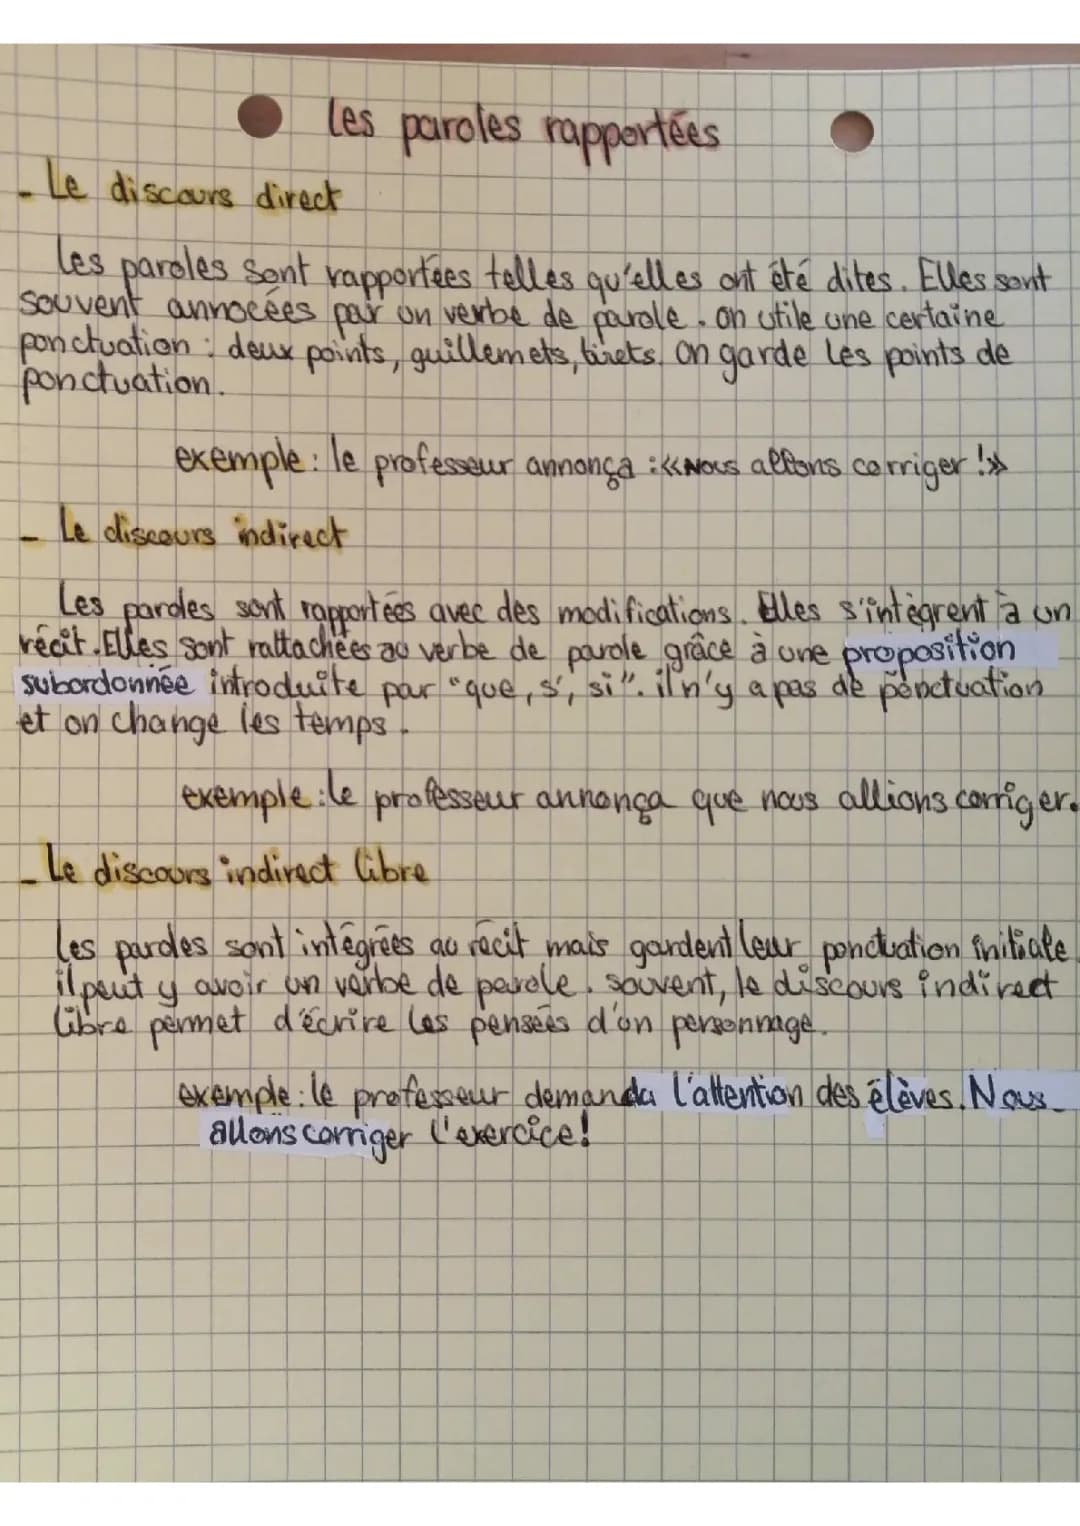 les paroles rapportées
- Le discours direct
les paroles sont rapportées telles qu'elles ont été dites. Elles sont
souvent annocées par un verbe de parole. on utile une certaine
ponctuation : deux points, guillemets, tirets. on garde les points de
ponctuation.
exemple : le professeur annonça : «Nous allons corriger !»
- Le discours indirect
Les paroles sont rapportées avec des modifications. Elles s'intègrent à un
récit. Elles sont rattachées au verbe de parole grâce à une proposition
subordonnée introduite par "que, s', si". il n'y a pas de ponctuation
et on change les temps.
exemple : le professeur annonça que nous allions corriger.
- Le discours indirect libre
les paroles sont intégrées au récit mais gardent leur ponctuation initiale
il peut y avoir un verbe de parole. souvent, le discours indirect
libre permet d'écrire les pensées d'un personnage.
exemple : le professeur demanda l'attention des élèves. Nous
allons corriger l'exercice !